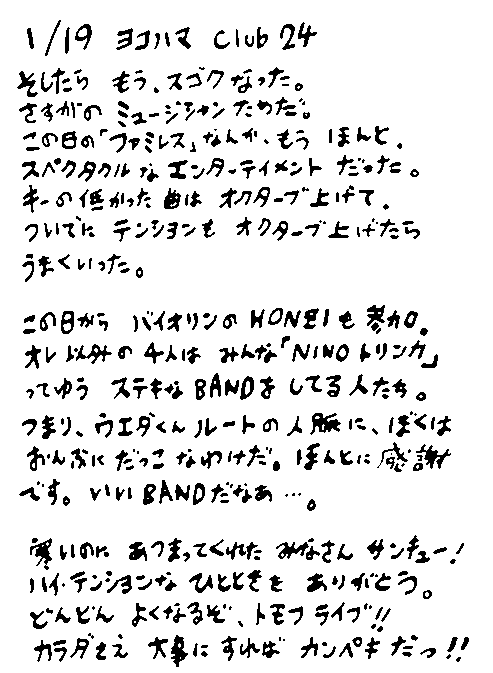 1/19 ヨコハマ Club 24
そしたら もう、スゴクなった。
さすがの ミュージシャンためだ。
この日の「ファミレス」なんか、もう ほんと、
スペクタクルな エンターテイメント だった。
キーの低かった曲は オクターブ上げて、
ついでに テンションも オクターブ上げたら
うまくいった。
この日から バイオリンの HONZIも参加。
オレ以外の4人は みんな「NINOトリンカ」
ってゆう ステキなBANDを してる人たち。
つまり、ウエダくんルートの人脈に、ぼくは
おんぶに だっこ なわけだ。ほんとに感謝
です。いいBANDだなあ…。
寒いのに あつまってくれた みなさん サンキュー!
ハイ・テンションな ひとときを ありがとう。
どんどん よくなるぞ、トモフ ライブ!!
カラダさえ 大事にすれば カンペキ だっ!!